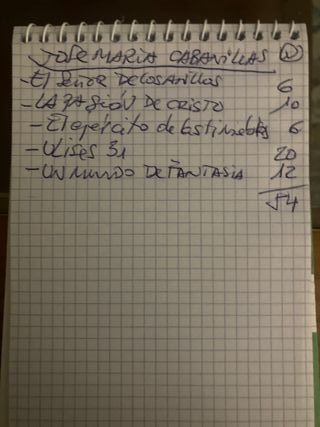 JOSE MARIA CABANILLAS
- El Señor DE LOS ANILLOS 6
- LA PASIÓN DE CRISTO 10
- El ejército de los tinieblas 6
- Ulises 31 20
- UN MUNDO DE FANTASIA 12
54